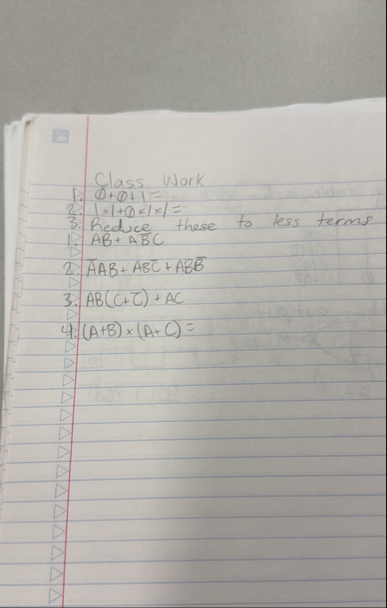 Class Work
1. 0+0+1=
2. 1x1+0x1x1=
3. Reduce these to less terms
1. AB+AB̅C
2. A̅AB+ABC̅+ABB̅
3. AB(C+C̅)+AC
4. (A+B)x(A+C)=